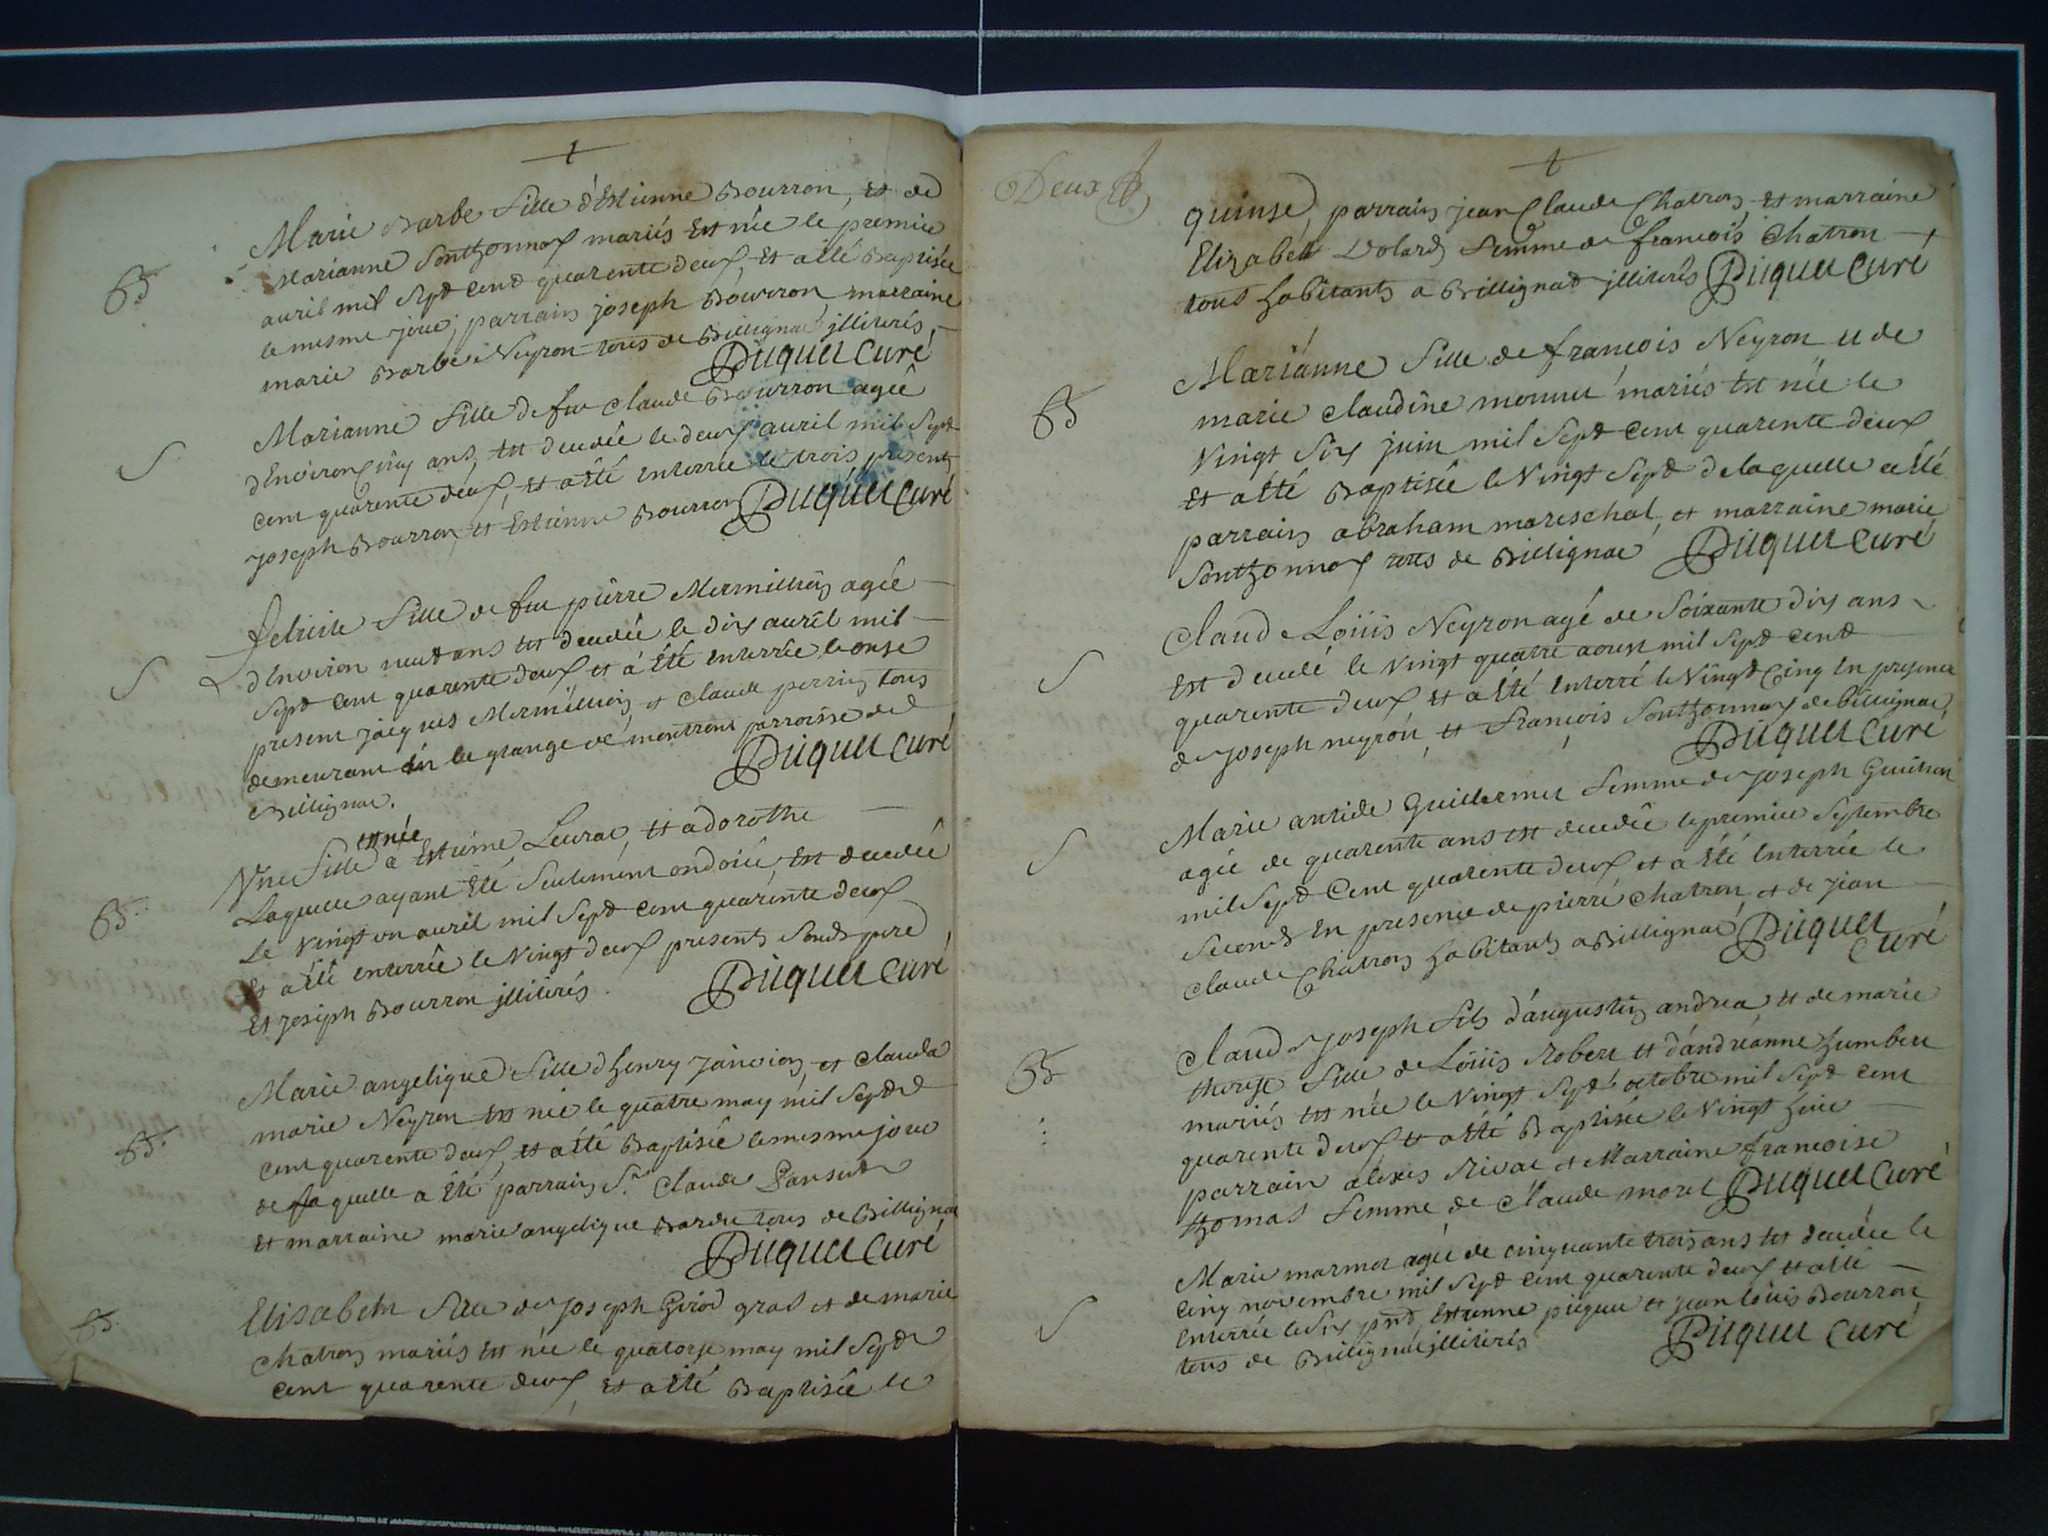 Marie Barbe fille d'Estienne Bourron, et de
Marianne Sonthonnax mariés est née le premier
auril mil sept cent quarente deux, et a êté Baptisée
le mesme jour, parrain joseph Bourron marraine
marie Barbe Neyron tous de Billignac illiterés
Piquet Curé
B
Marianne fille de feu Claude Bourron agée
d'Environ cinq ans, est decedée le deux auril mil sept
cent quarente deux, et a êté enterrée le trois presents
joseph Bourron, et Estienne Bourron Piquet Curé
S
fille de feu pierre Mermillion agée
d'Environ neuf ans est decedée le dix auril mil
sept cent quarente deux et a êté enterrée le onse
present jacques Mermillion et claude perrin tous
demeurant en la grange de montrent parroisse de
Billignac.
Piquet Curé
S
est née
Une fille a Estiene Leurat, et a dorothe
Laquelle ayant êté seulement ondoiée, est decedée
Le vingt un auril mil sept cent quarente deux
Et a êté enterrée le vingt deux presents
Et joseph Bourron illiterés. Piquet Curé
B
Marie angelique fille d'henry janvion, et clauda
marie Neyron est née le quatre may mil sept
cent quarente deux, et a êté Baptisée le mesme jour
de laquelle a êté parrain Sr. Claude
et marraine marie angelique tous de Billignac
Piquet Curé
B
Elisabeth fille de joseph Girod gras et de marie
Chatron mariés est née le quatorze may mil sept
cent quarente deux, et a êté Baptisée le
B
Deux
quinse, parrain jean Claude Chatron et marraine
Elizabet Volard femme de françois Chatron
tous habitants a Billignat illiterés Piquet Curé
Marianne fille de françois Neyron et de
marie claudine monnet mariés est née le
vingt six juin mil sept cent quarente deux
et a êté Baptisée le vingt sept de laquelle a êté
parrain abraham mareschal, et marraine marie
Sonthonnax tous de Billignac Piquet Curé
B
Claude Loüis Neyron agé de soixante dix ans
Est decedé le vingt quatre aoust mil sept cent
quarente deux et a êté enterré le vingt cinq en presence
de joseph neyron, et françois Sonthonnax de billignac
Piquet Curé
S
Marie antide Guillermet femme de joseph
agée de quarente ans est decedée le premier septembre
mil sept cent quarente deux, et a êté enterrée le
second en presence de pierre chatron, et de jean
claude Chatron habitants a Billignac Piquet
Curé
S
Claude joseph fils d'augustin andrea, et de marie
therese fille de Loüis Robert et d'andréanne humbert
mariés est née le vingt sept octobre mil sept cent
quarente deux, et a êté Baptisée le vingt huit
parrain alexis Rivat et Marraine françoise
thomas femme de claude morel Piquet Curé
B
Marie marmet agée de cinquante trois ans est decedée le
cinq novembre mil sept cent quarente deux et a êté
enterrée le six pnts Estienne piquet et jean loüis Bourron
tous de Billignac illiterés Piquet Curé
S